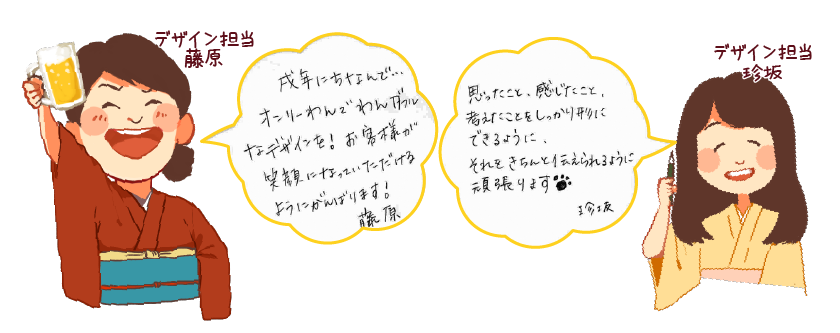 デザイン担当
藤原
戌年にちなんで…
オンリーわんでわんダフル
なデザインを！お客様が
笑顔になっていただける
ようにがんばります！
藤原
思ったこと、感じたこと、
考えたことをしっかり形に
できるように、
それをきちんと伝えられるように
頑張ります
珍坂
デザイン担当
珍坂